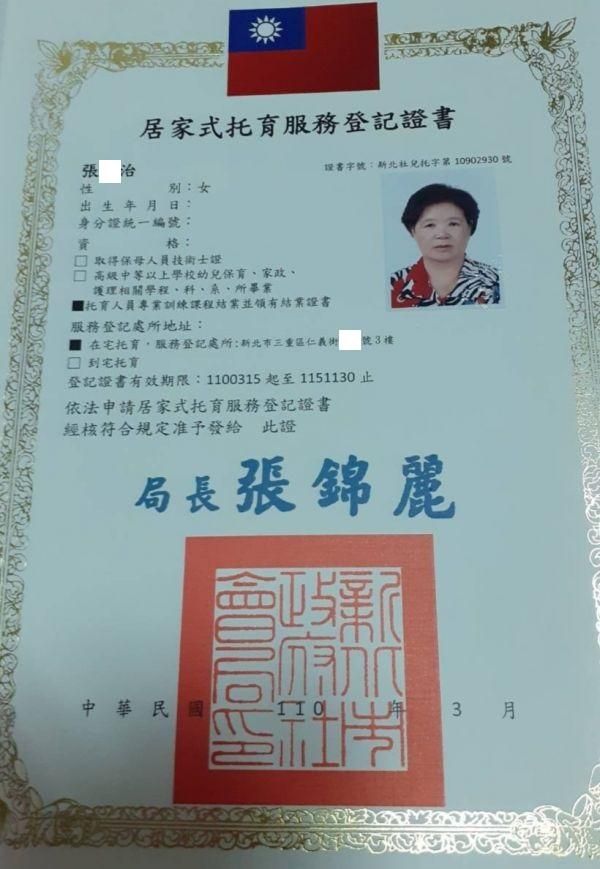 居家式托育服務登記證書
證書字號：新北社兒托字第 10902930 號
張 治
性 別：女
出生年月日：
身分證統一編號：
資 格：
□ 取得保母人員技術士證
□ 高級中等以上學校幼兒保育、家政、
護理相關學程、科、系、所畢業
■托育人員專業訓練課程結業並領有結業證書
服務登記處所地址：
■ 在宅托育，服務登記處所:新北市三重區仁義街 號3樓
□ 到宅托育
登記證書有效期限：1100315 起至 1151130 止
依法申請居家式托育服務登記證書
經核符合規定准予發給 此證
局長 張錦麗
新北市
政府社
會局印
中華民國 110 年 3 月